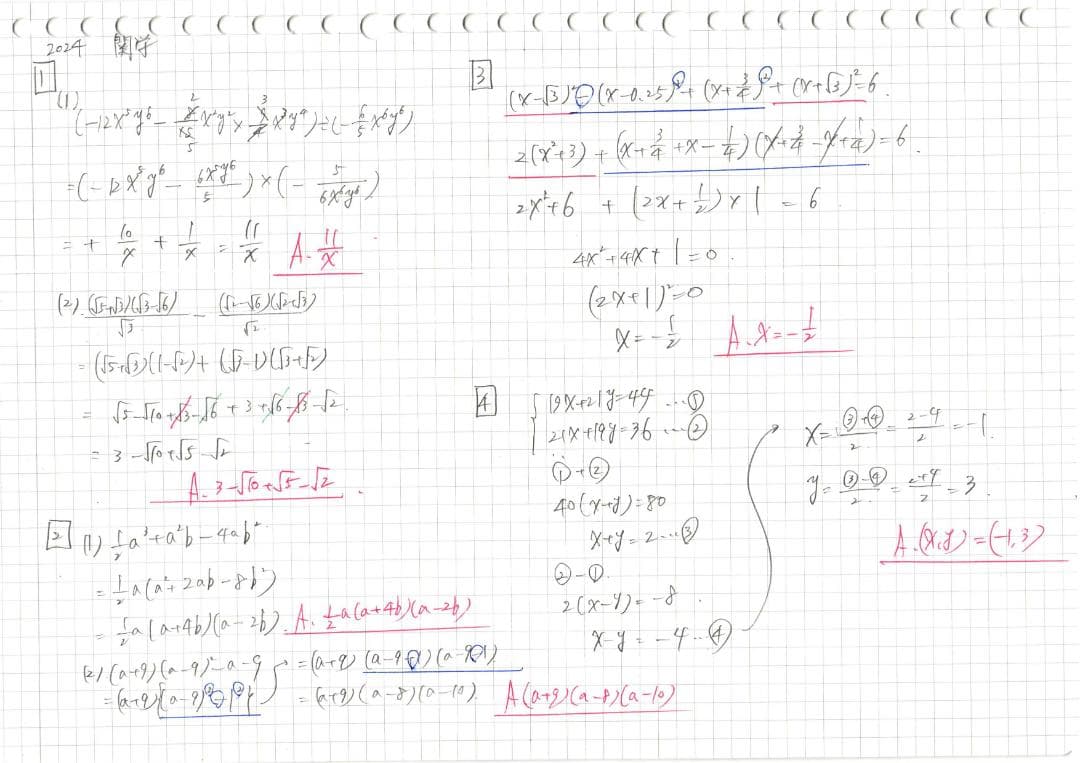 2024 関学
1
(1)
(-12x⁵y⁶ - 8/15 x²y² × 9/4 x³y⁴) ÷ (-6/5 x⁶y⁶)
= (-12x⁵y⁶ - 6x⁵y⁶/5) × (-5/6x⁶y⁶)
= + 10/x + 1/x = 11/x
A. 11/x
(2) (√5+√3)(√3-√6)/√3 - (√2-√6)(√2+√3)/√2
= (√5+√3)(1-√2) + (√3-1)(√3+√2)
= √5-√10+√3-√6+3+√6-√3-√2
= 3-√10+√5-√2
A. 3-√10+√5-√2.
2 (1) 1/2 a³+a²b-4ab²
= 1/2 a(a²+2ab-8b²)
= 1/2 a(a+4b)(a-2b). A. 1/2 a(a+4b)(a-2b)
(2) (a+9)(a-9)²-a-9
= (a+9){(a-9)²-1²}
= (a+9)(a-9+1)(a-9-1)
= (a+9)(a-8)(a-10). A (a+9)(a-8)(a-10)
3
(x-√3)²-(x-0.25)²+(x+3/4)²+(x+√3)²=6.
2(x²+3)+(x+3/4+x-1/4)(x+3/4-x+1/4)=6
2x²+6 + (2x+1/2)×1 = 6
4x²+4x+1=0.
(2x+1)²=0
x=-1/2
A. x=-1/2
4
{19x+21y=44 …①
21x+19y=36 …②
①+②
40(x+y)=80
x+y=2…③
②-①.
2(x-y)=-8.
x-y=-4…④
x=③+④/2=2-4/2=-1.
y=③-④/2=2+4/2=3.
A. (x,y)=(-1,3)